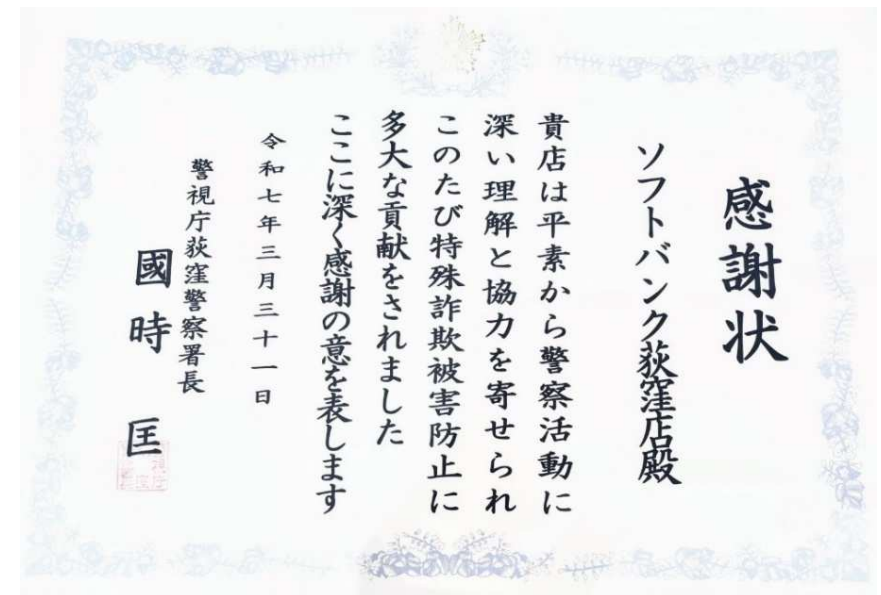 感謝状
ソフトバンク荻窪店殿
貴店は平素から警察活動に
深い理解と協力を寄せられ
このたび特殊詐欺被害防止に
多大な貢献をされました
ここに深く感謝の意を表します
令和七年三月三十一日
警視庁荻窪警察署長
國時匡